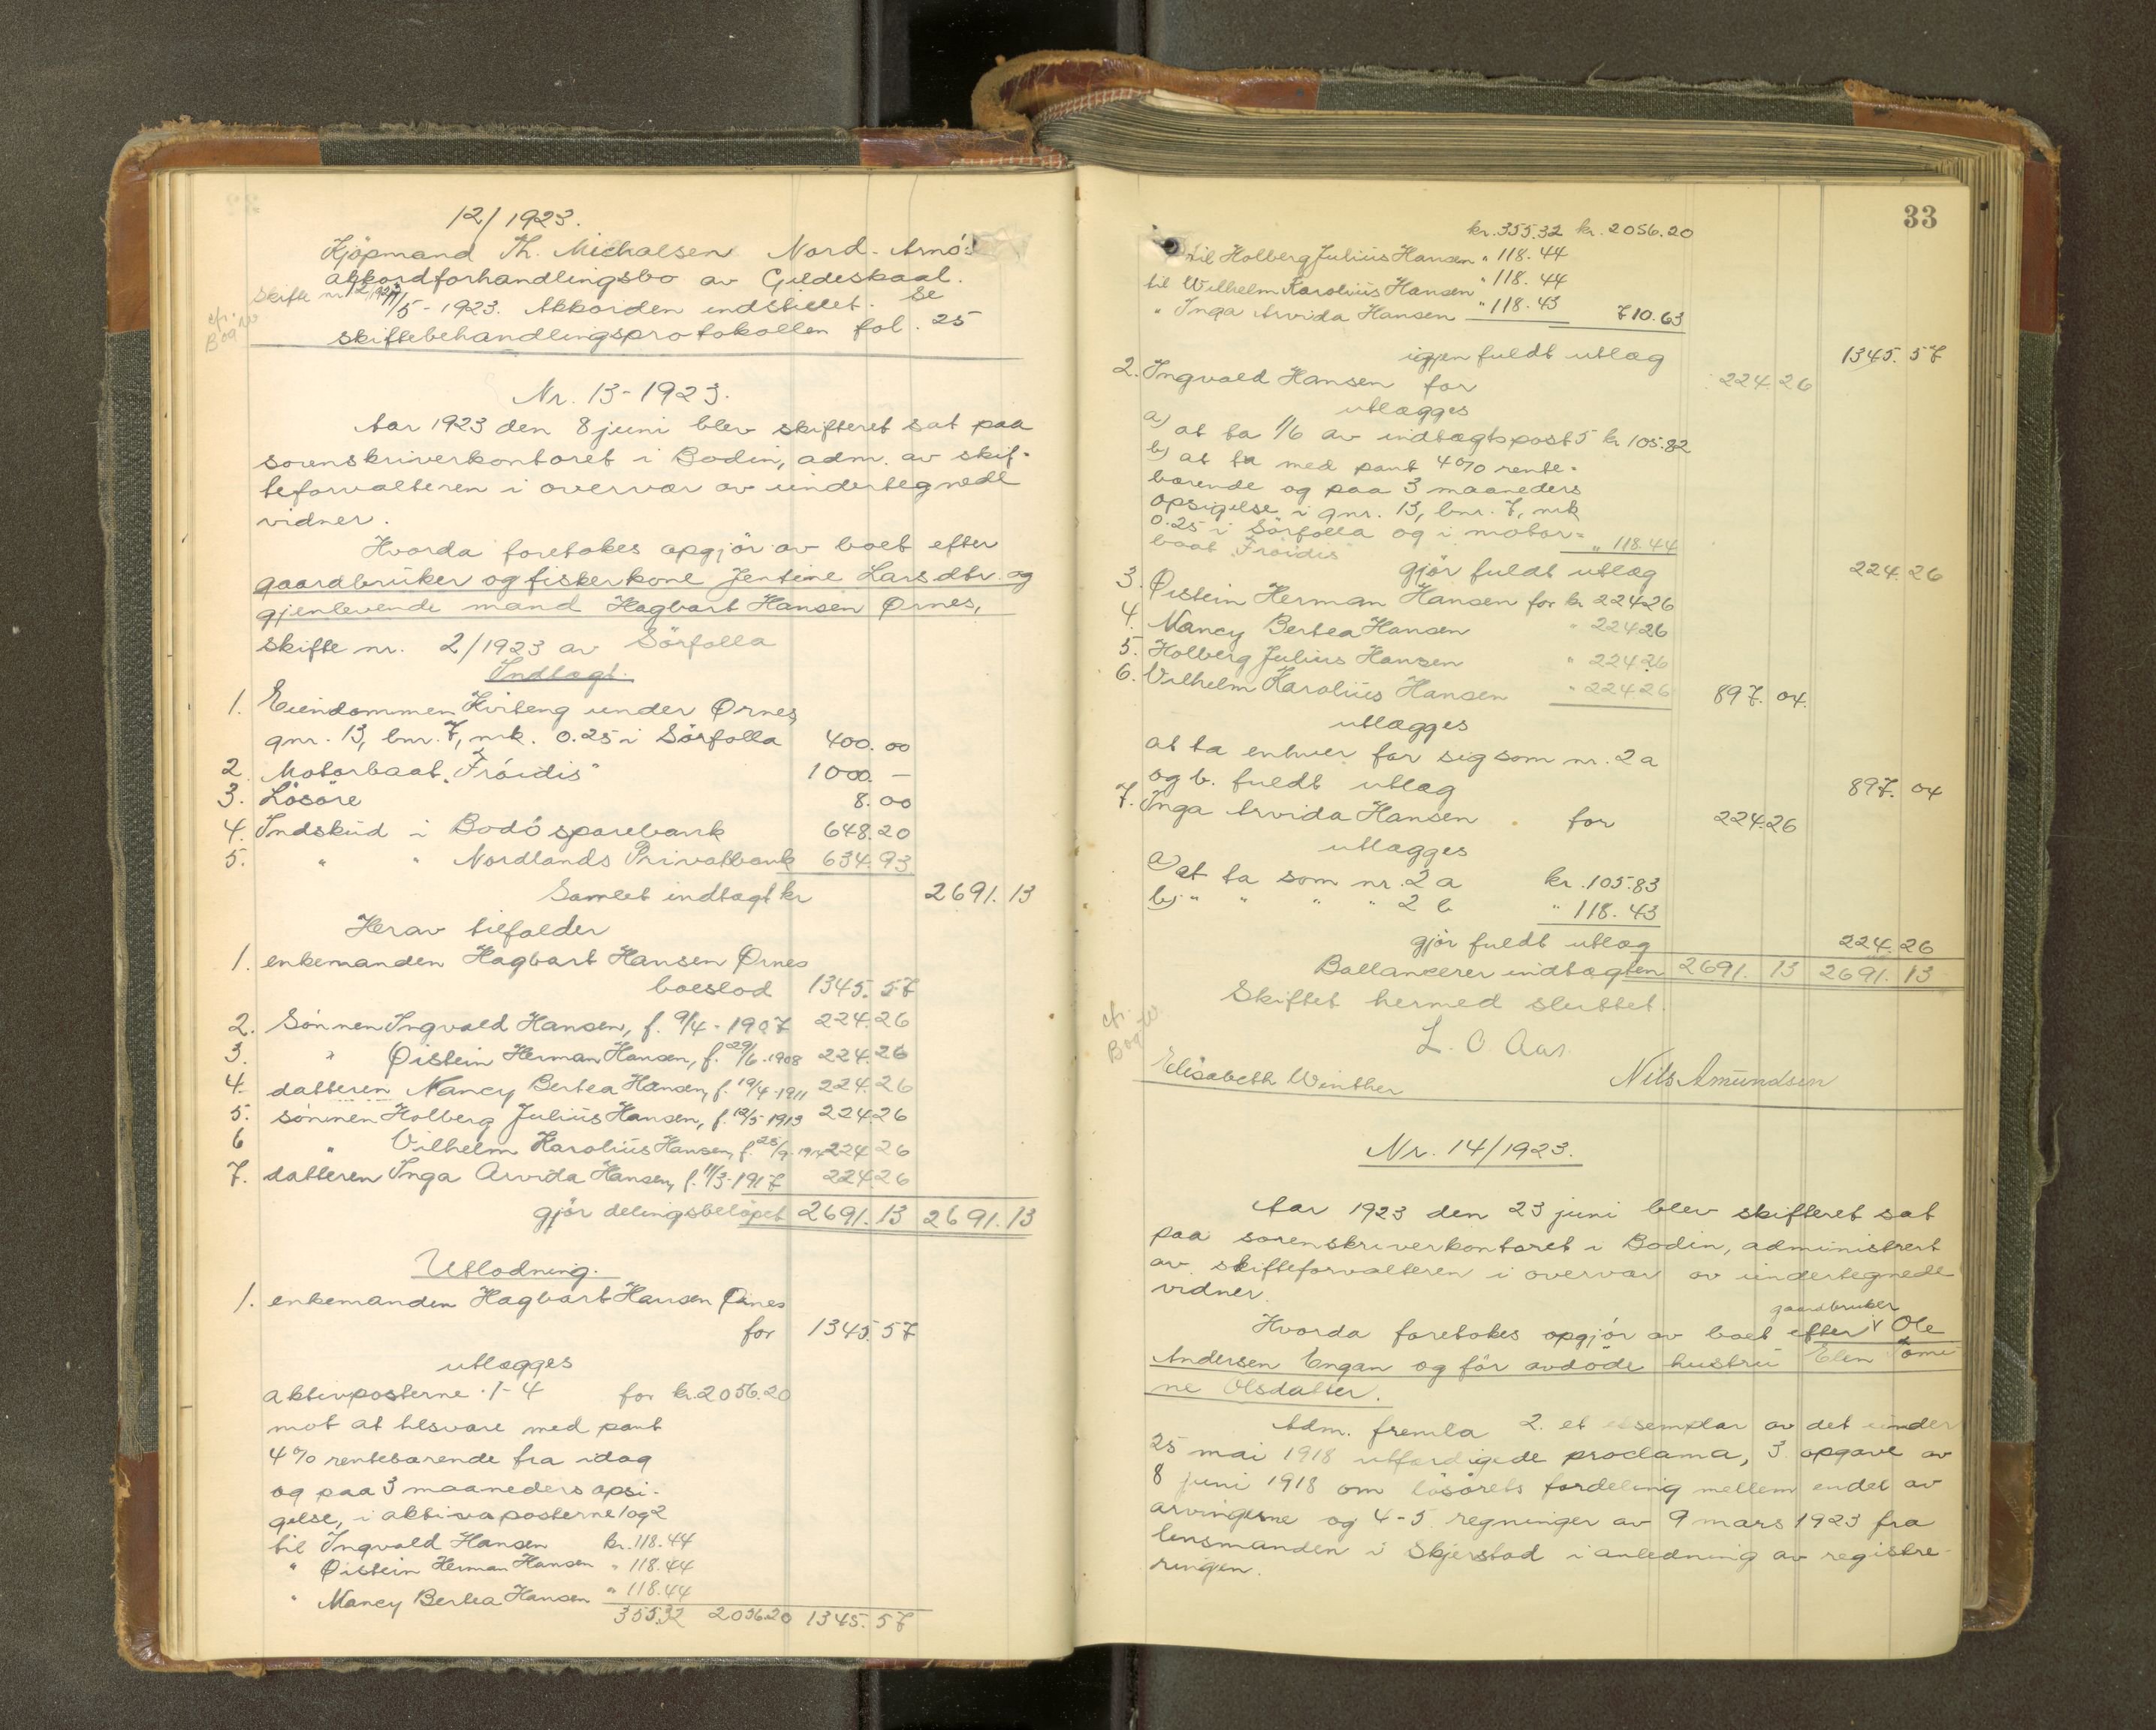 12/1923.
Kjöpmand Th. Michalsen Nord-Arnö's
akkordforhandlingsbo av Gildeskaal.
skifte nr. 12/1923
11/5-1923. Akkorden indstillet. Se
skiftebehandlingsprotokollen fol. 25
cfr.
Bog
Nr. 13-1923.
Aar 1923 den 8 juni blev skifteret sat paa
sorenskriverkontoret i Bodin, adm. av skif-
teforvalteren i overvær av undertegnede
vidner.
Hvorda foretokes opgjör av boet efter
gaardbruker og fiskerkone Jentine Larsdtr. og
gjenlevende mand Hagbart Hansen Ørnes,
skifte nr. 2/1923 av Sörfolla
Indtægt.
1. Eiendommen Kviteng under Ørnes,
gnr. 13, bnr. 7, mrk. 0.25 i Sörfolla 400.00
2. Motorbaat „Fröidis" 1000.-
3. Lösöre 8.00
4. Indskud i Bodö sparebank 648.20
5. " " Nordlands Privatbank 634.93
Samlet indtægt kr 2691.13
Herav tilfalder
1. enkemanden Hagbart Hansen Ørnes
boeslod 1345.57
2. Sönnen Ingvald Hansen, f. 9/4-1907 224.26
3. " Øistein Herman Hansen, f. 29/6-1908 224.26
4. datteren Nancy Bertea Hansen, f. 19/4-1911 224.26
5. sönnen Holberg Julius Hansen, f. 12/5-1913 224.26
6 " Vilhelm Karolius Hansen, f. 25/9-1914 224.26
7. datteren Inga Arvida Hansen, f. 11/3-1917 224.26
gjör delingsbelöpet 2691.13 2691.13
Utlodning.
1. enkemanden Hagbart Hansen Ørnes
for 1345.57
utlægges
aktivposterne 1-4 for kr. 2056.20
mot at tilsvare med pant
4% rentebærende fra idag
og paa 3 maaneders opsi-
gelse, i aktivaposterne 1 og 2
til Ingvald Hansen kr. 118.44
" Øistein Herman Hansen " 118.44
" Nancy Bertea Hansen " 118.44
355.32 2056.20 1345.57
33
kr. 355.32 kr. 2056.20
til Holberg Julius Hansen " 118.44
til Wilhelm Karolius Hansen " 118.44
" Inga Arvida Hansen " 118.43 710.63
igjen fuldt utlæg 1345.57
2. Ingvald Hansen for 224.26
utlægges
a) at ta 1/6 av indtægtspost 5 kr 105.82
b) at ta med pant 4% rente-
bærende og paa 3 maaneders
opsigelse i gnr. 13, bnr. 7, mrk
0.25 i Sörfolla og i motor-
baat „Fröidis" " 118.44
gjör fuldt utlæg 224.26
3. Øistein Herman Hansen for kr 224.26
4. Nancy Bertea Hansen " 224.26
5. Holberg Julius Hansen " 224.26
6. Vilhelm Karolius Hansen " 224.26 897.04.
utlægges
at ta enhver for sig som nr. 2 a
og b. fuldt utlæg 897.04
7. Inga Arvida Hansen for 224.26
utlægges
a) at ta som nr. 2 a kr. 105.83
b) " " " " 2 b " 118.43
gjör fuldt utlæg 224.26
Ballancerer indtægten 2691.13 2691.13
Skiftet hermed sluttet.
cfr.
Bog
L. O. Aas.
Elisabeth Winther Nils Amundsen
Nr. 14/1923.
Aar 1923 den 23 juni blev skifteret sat
paa sorenskriverkontoret i Bodin, administrert
av skifteforvalteren i overvær av undertegnede
vidner.
gaardbruker
Hvorda foretokes opgjör av boet efter Ole
Andersen Engan og för avdöde hustru Elen Tomi-
ne Olsdatter.
Adm. fremla 2. et eksemplar av det under
25 mai 1918 utfærdigede proclama, 3. opgave av
8 juni 1918 om lösörets fordeling mellem endel av
arvingerne og 4-5 regninger av 9 mars 1923 fra
lensmanden i Skjerstad i anledning av registre-
ringen.